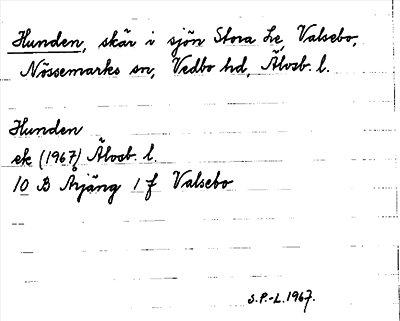 Hunden, skär i sjön Stora Le, Valsebo,
Nössemarks sn, Vedbo hd, Älvsb. l.
Hunden
ek (1967) Älvsb. l.
10 B Årjäng 1 f Valsebo
S.P.-L. 1967.